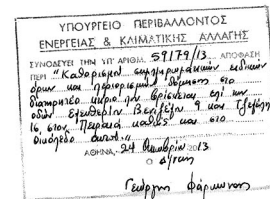 ΥΠΟΥΡΓΕΙΟ ΠΕΡΙΒΑΛΛΟΝΤΟΣ
ΕΝΕΡΓΕΙΑΣ & ΚΛΙΜΑΤΙΚΗΣ ΑΛΛΑΓΗΣ
ΣΥΝΟΔΕΥΕΙ ΤΗΝ ΥΠ' ΑΡΙΘΜ. 59179/13 ΑΠΟΦΑΣΗ
ΠΕΡΙ "Καθορισμού συμπληρωματικών ειδικών
όρων και περιορισμών δόμησης στο
διατηρητέο κτίριο που βρίσκεται επί των
οδών Ελευθερίου Βενιζέλου 9 και Τζαβέλλα
16, στον Πειραιά καθώς και στο
οικόπεδο αυτού."
ΑΘΗΝΑ, 24 Οκτωβρίου 2013
Ο Δ/της
Γεώργης